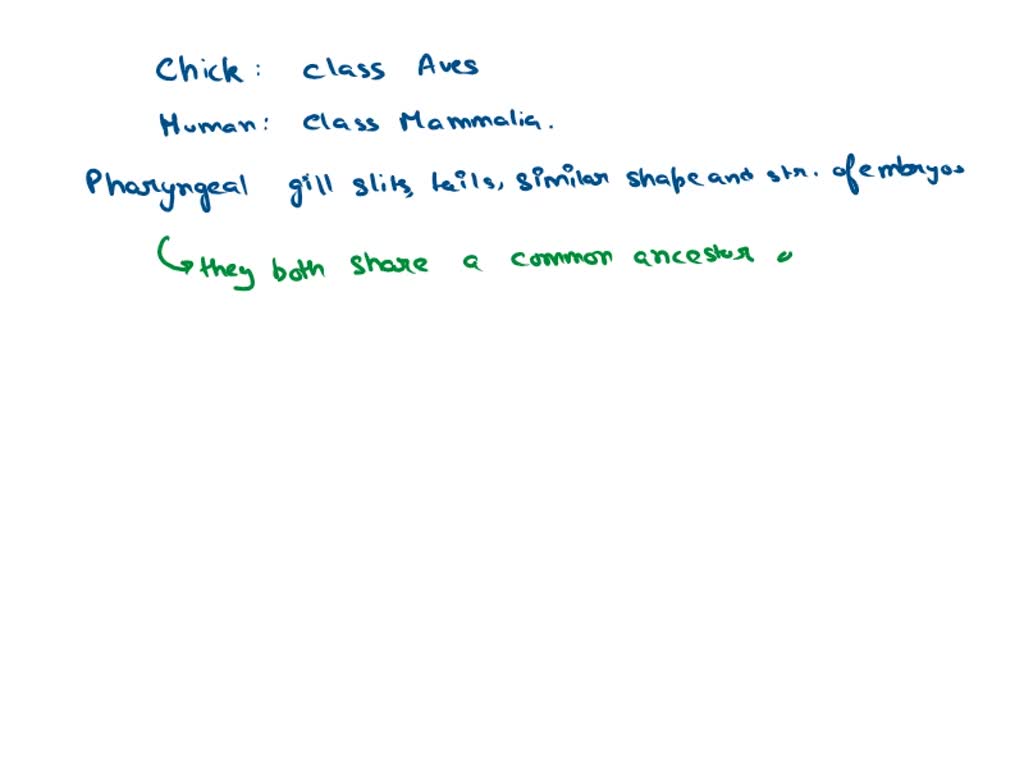 Chick: class Aves
Human: Class Mammalia.
Pharyngeal gill slits, tails, similar shape and str. of embryos
they both share a common ancestor.